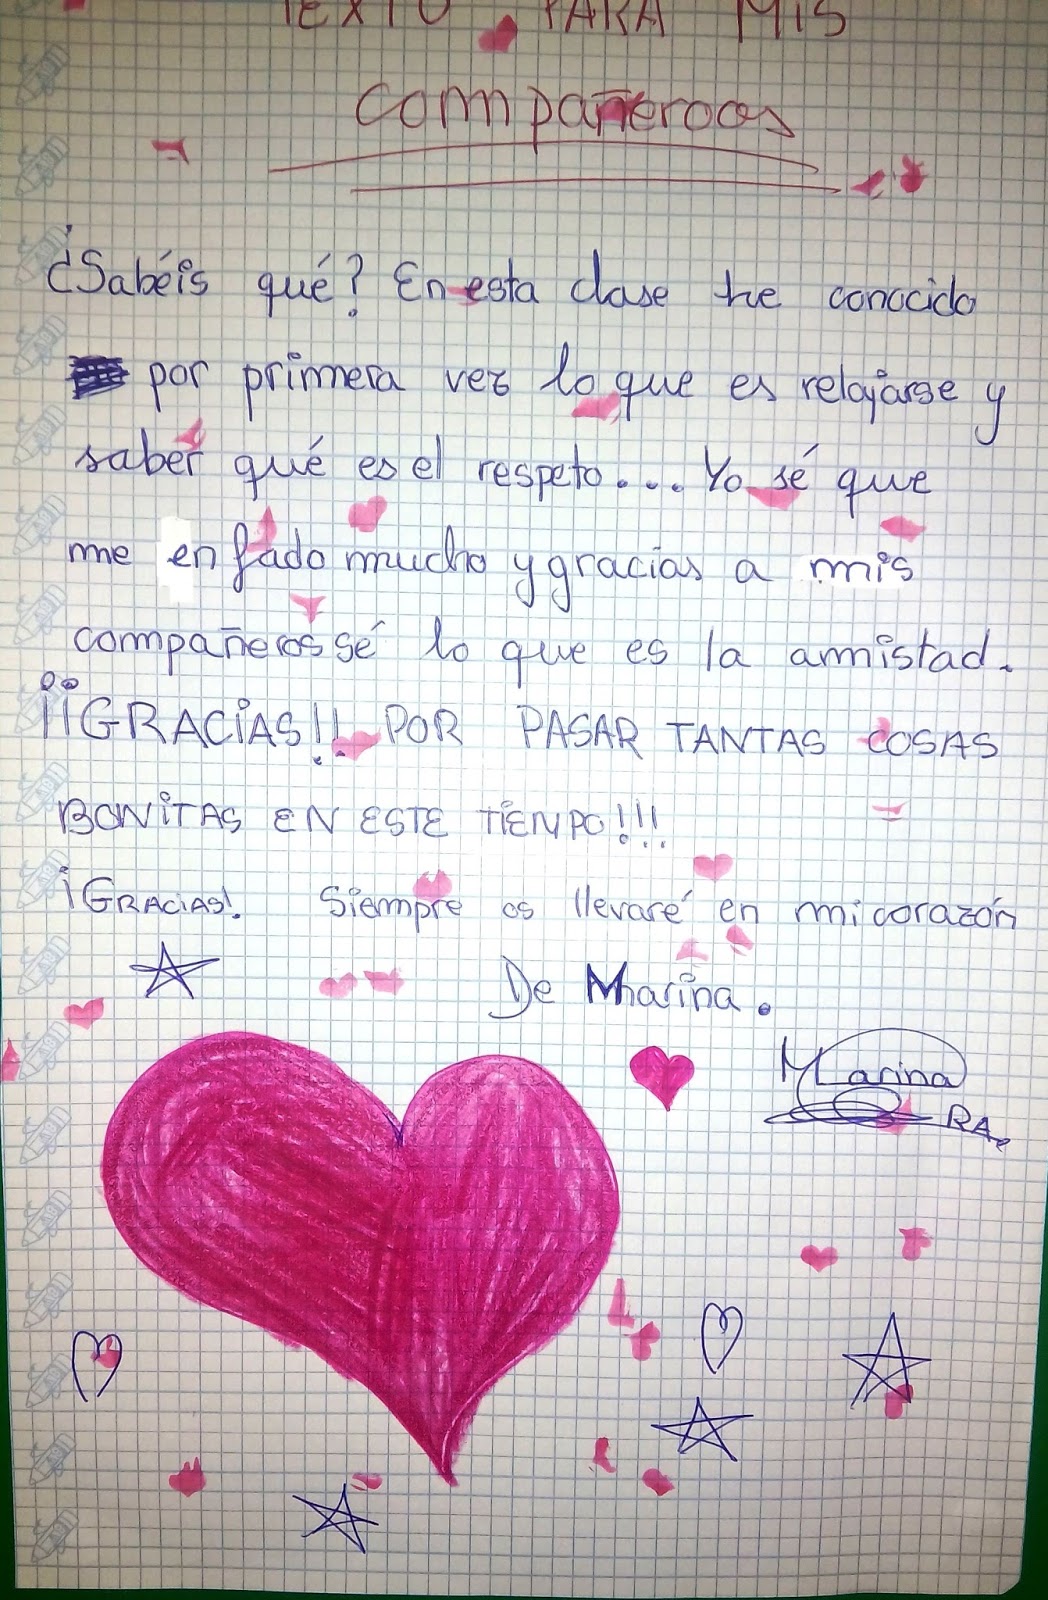 TEXTO PARA MIS
compañeroos
¿Sabéis qué? En esta clase he conocido
por primera vez lo que es relajarse y
saber qué es el respeto.... Yo sé que
me enfado mucho y gracias a mis
compañeros sé lo que es la amistad.
¡¡GRACIAS!! POR PASAR TANTAS COSAS
BONITAS EN ESTE TIEMPO!!!
¡GRACIAS!. Siempre os llevaré en mi corazón
De Marina.
Marina
RA.